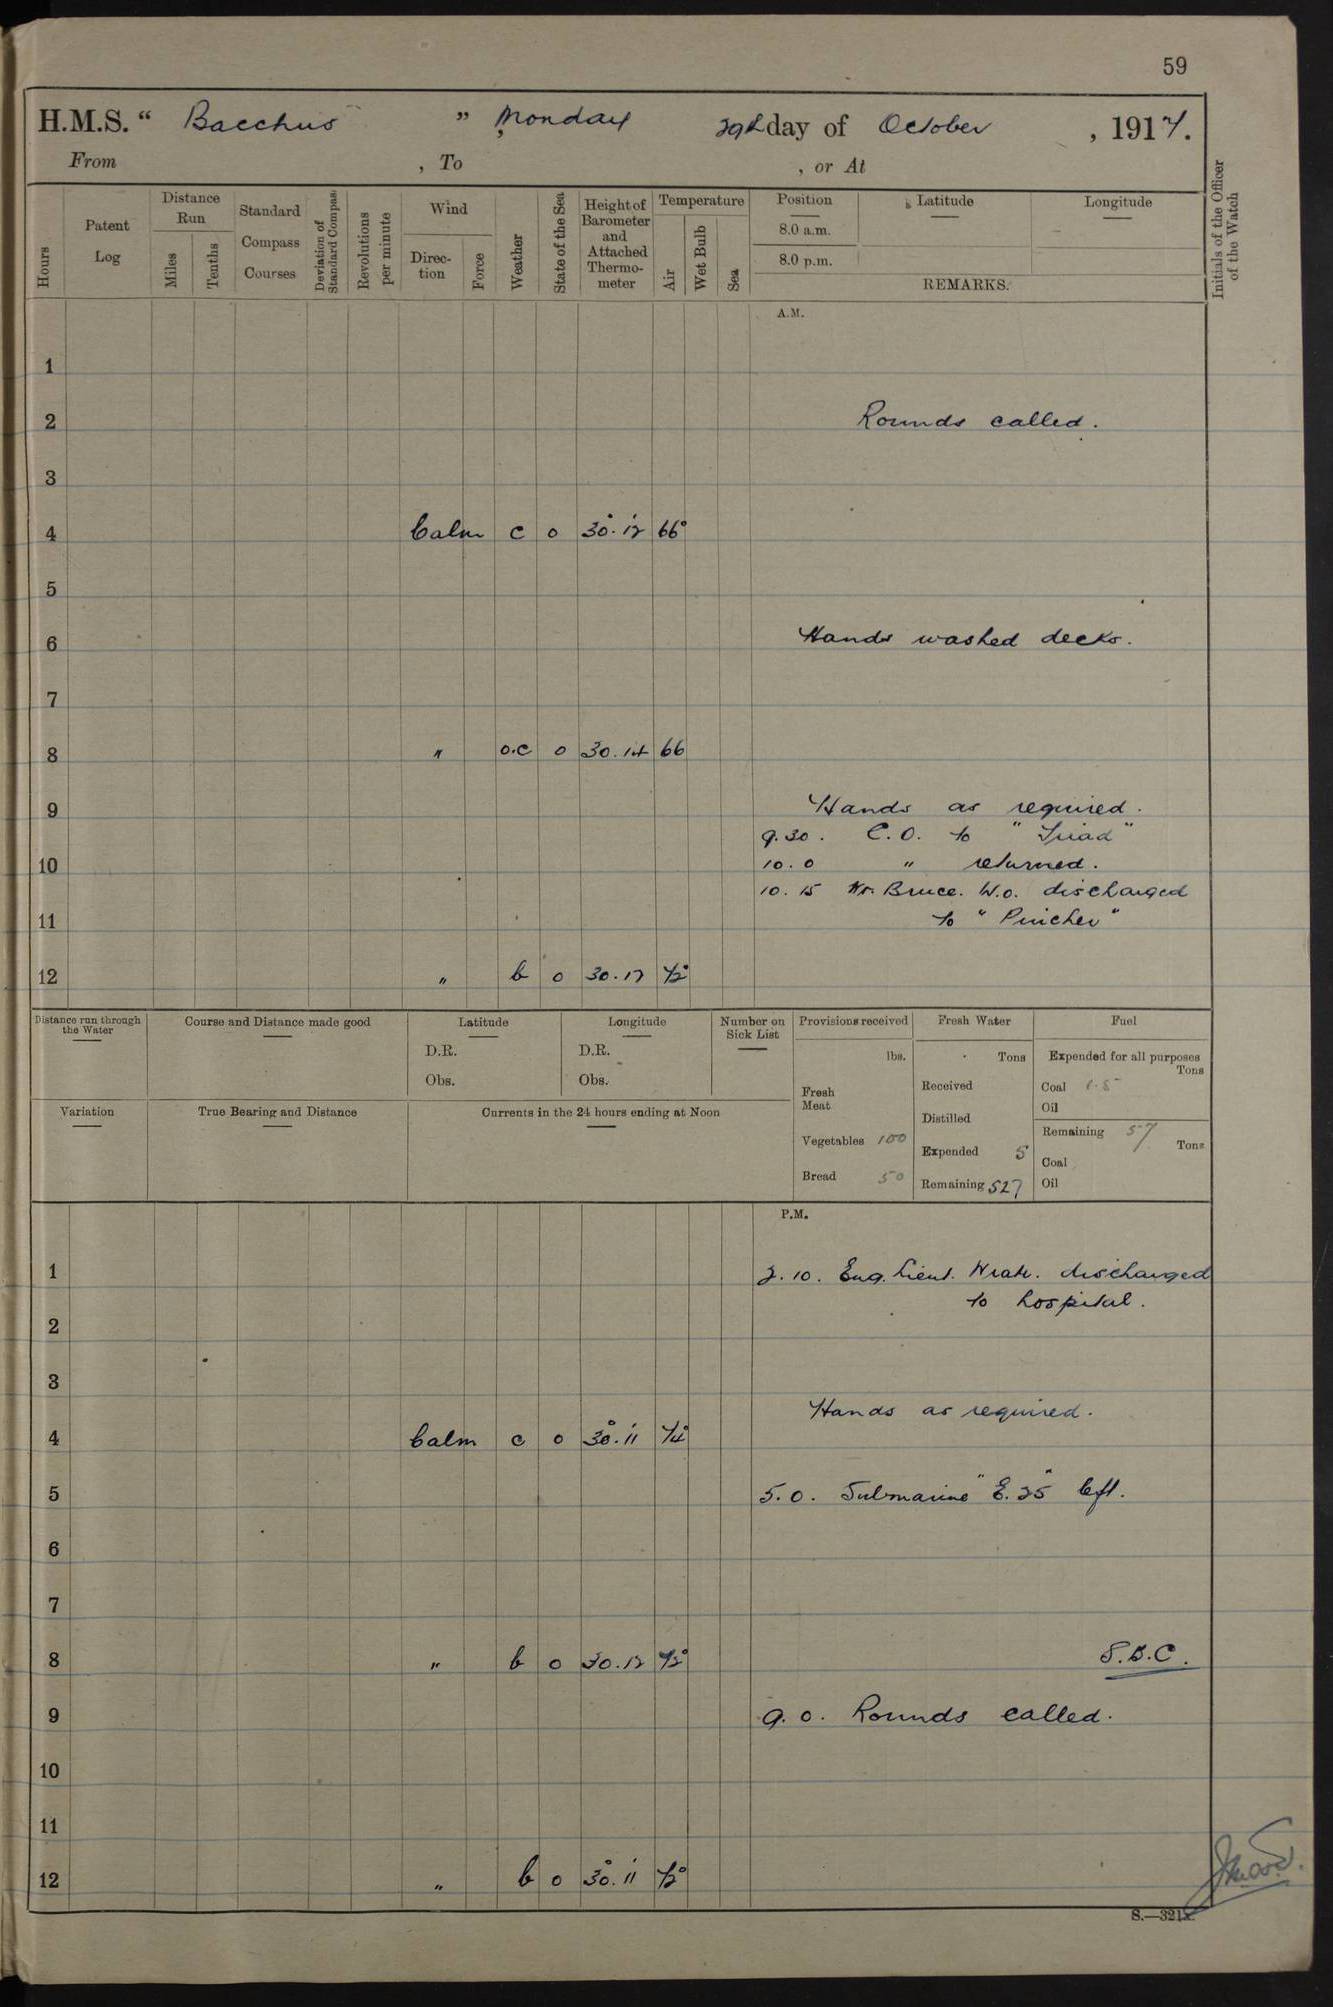 59
H.M.S. “ Bacchus ” , Monday 29th day of October , 1917.
From , To , or At
Hours Patent Log Distance Run Miles Tenths Standard Compass Courses Deviation of Standard Compass Revolutions per minute Wind Direction Force Weather State of the Sea Height of Barometer and Attached Thermometer Temperature Air Wet Bulb Sea Position 8.0 a.m. 8.0 p.m. Latitude Longitude REMARKS. Initials of the Officer of the Watch
A.M.
1
2 Rounds called.
3
4 Calm c o 30.12 66°
5
6 Hands washed decks.
7
8 " o.c o 30.14 66
9 Hands as required.
9.30. C.O. to "Triad"
10 10.0 " returned.
10.15 Mr. Bruce. W.O. discharged
11 to "Pincher"
12 " b o 30.17 72°
Distance run through the Water Course and Distance made good Latitude Longitude Number on Sick List Provisions received Fresh Water Fuel
D.R. D.R. lbs. Tons Expended for all purposes Tons
Obs. Obs. Fresh Meat Received Coal 1.5
Oil
Variation True Bearing and Distance Currents in the 24 hours ending at Noon Distilled
Vegetables 100 Expended 5 Remaining 57 Tons
Coal
Bread 50 Remaining 527 Oil
P.M.
1 2.10. Eng. Lieut. discharged
to hospital.
2
3
Hands as required.
4 Calm c o 30.11 74°
5 5.0. Submarine "E.25" left.
6
7
8 " b o 30.12 72° S.B.C.
9 9.0. Rounds called.
10
11
12 " b o 30.11 72°
S.—321